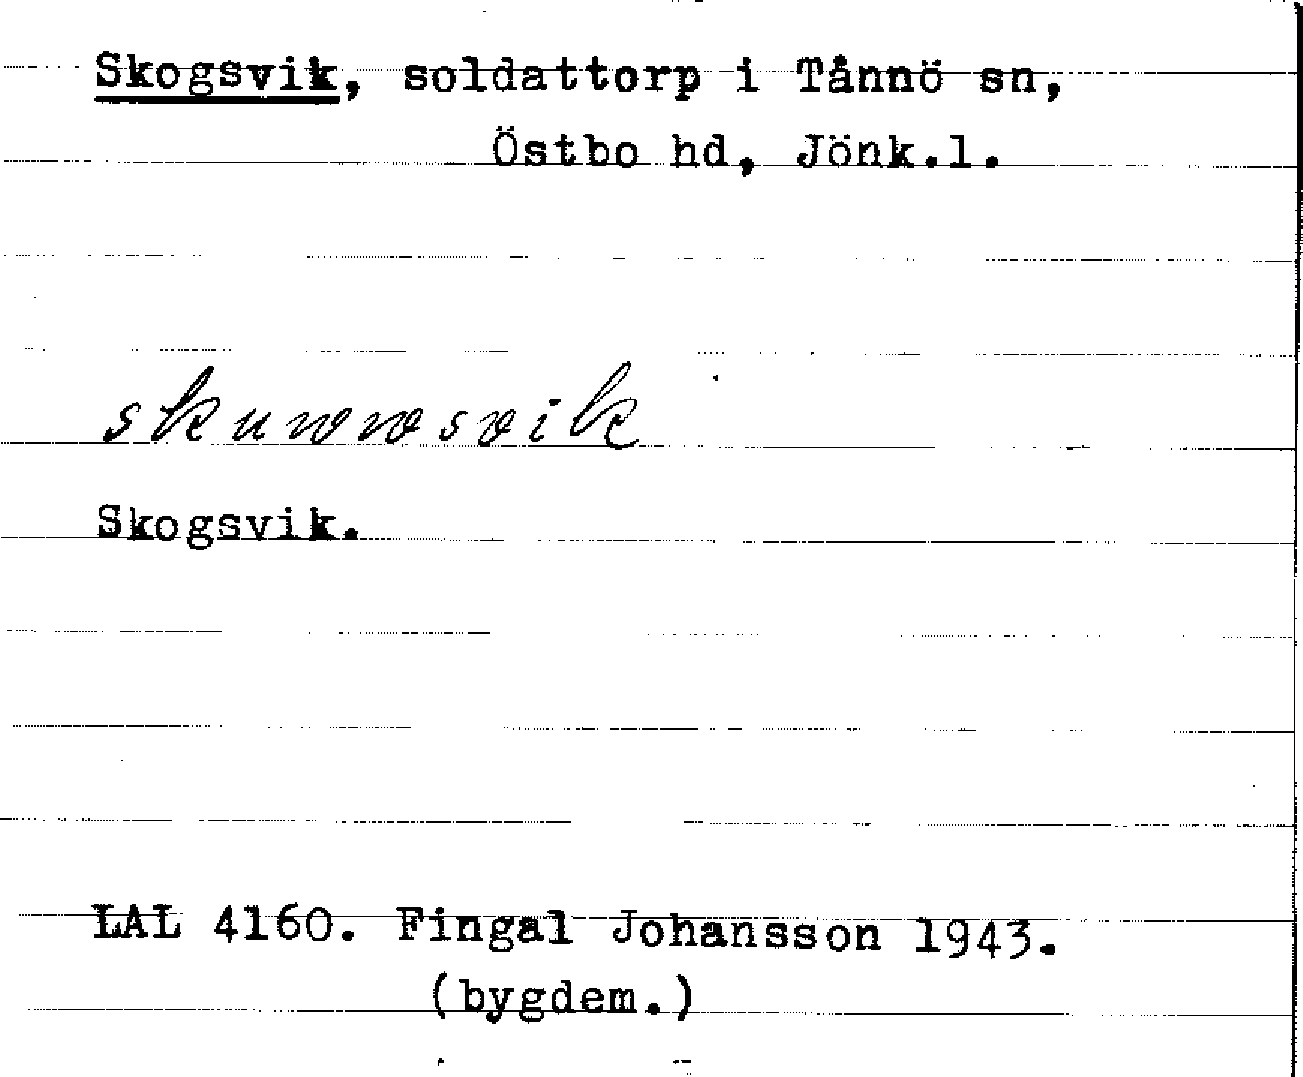 Skogsvik, soldattorp i Tånnö sn,
Östbo hd, Jönk.l.
Skogsvik.
LAL 4160. Fingal Johansson 1943.
(bygdem.)